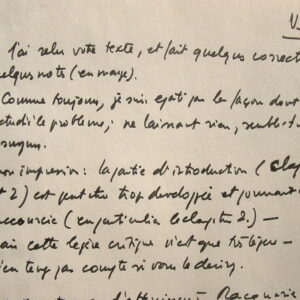 J'ai relu votre texte, et fait quelques correct
elques notes (en marge).
Comme toujours, je suis épaté par la façon dont
étudié le problème; ne laissant rien, semble-t-
mon impression: la partie d'introduction (chap
et 2) est peut-être trop développée et pourrait
accourcie (en particulier le chapitre 2.) —
ais cette légère critique n'est que
en tenez pas compte si vous le désirez.
Racourcie